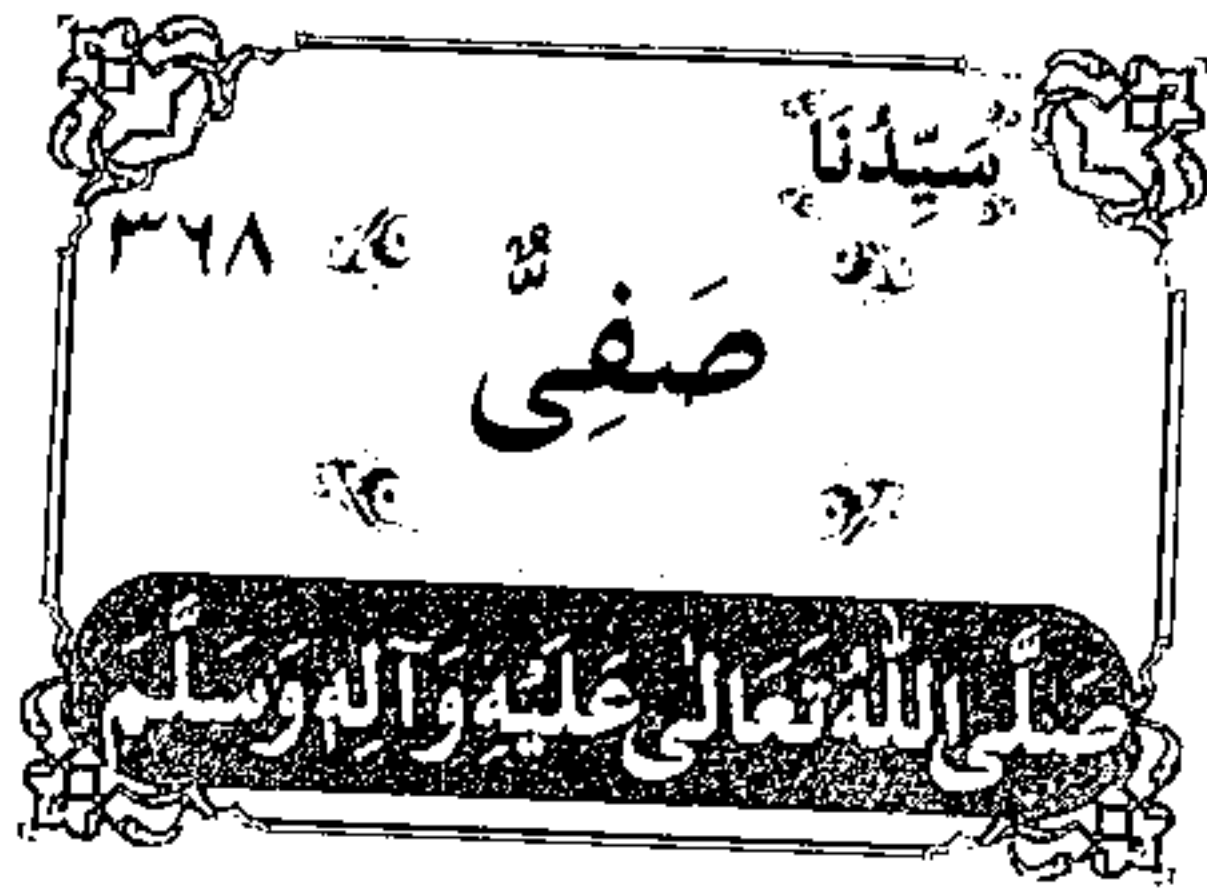 سَيِّدُنَا
٣٦٨
صَفِىٌّ
صَلَّى اللهُ تَعَالٰى عَلَيْهِ وَآلِهٖ وَسَلَّمَ